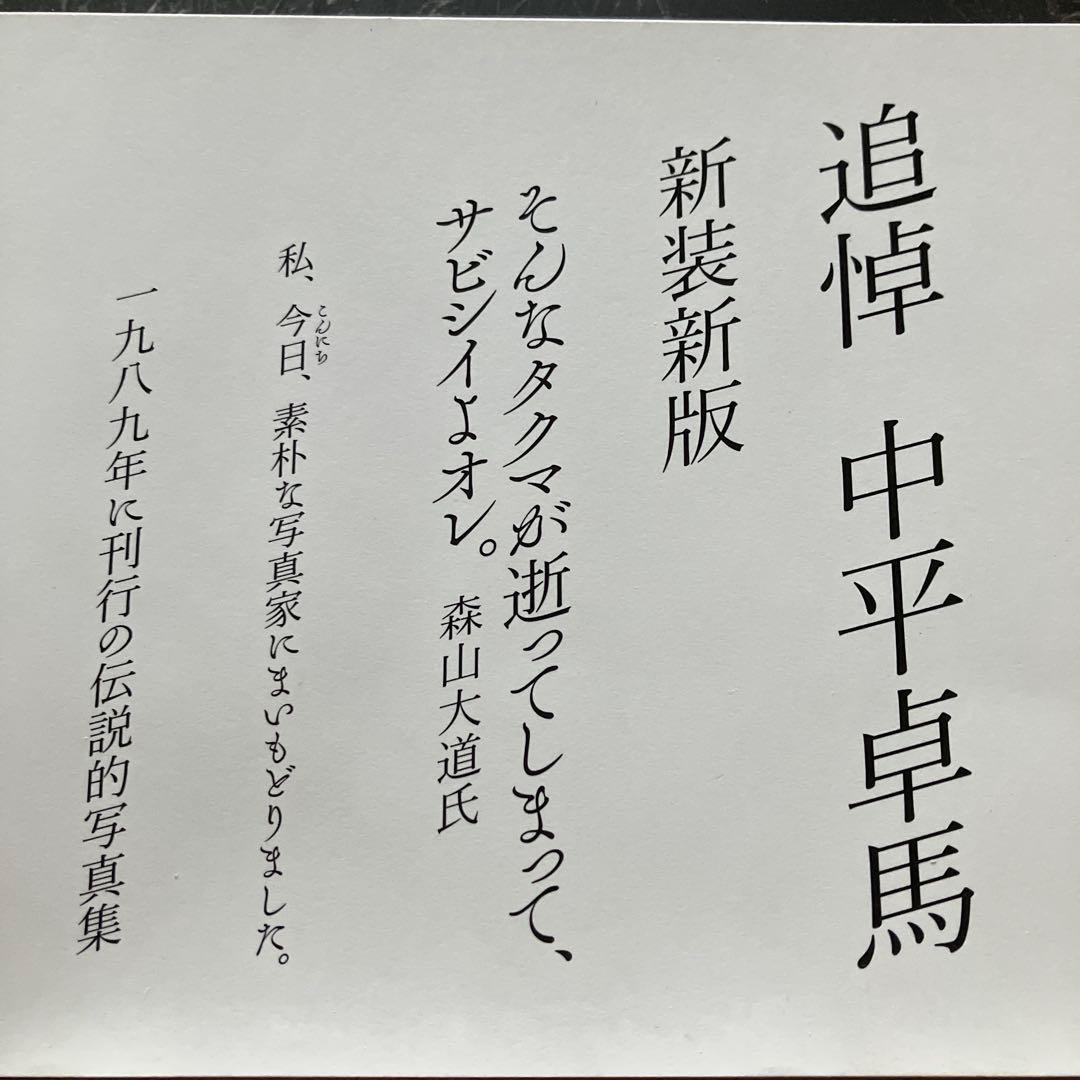 追悼 中平卓馬
新装新版
そんなタクマが逝ってしまって、
サビシイよオレ。 森山大道氏
私、今日、素朴な写真家にまいもどりました。
こんにち
一九八九年に刊行の伝説的写真集